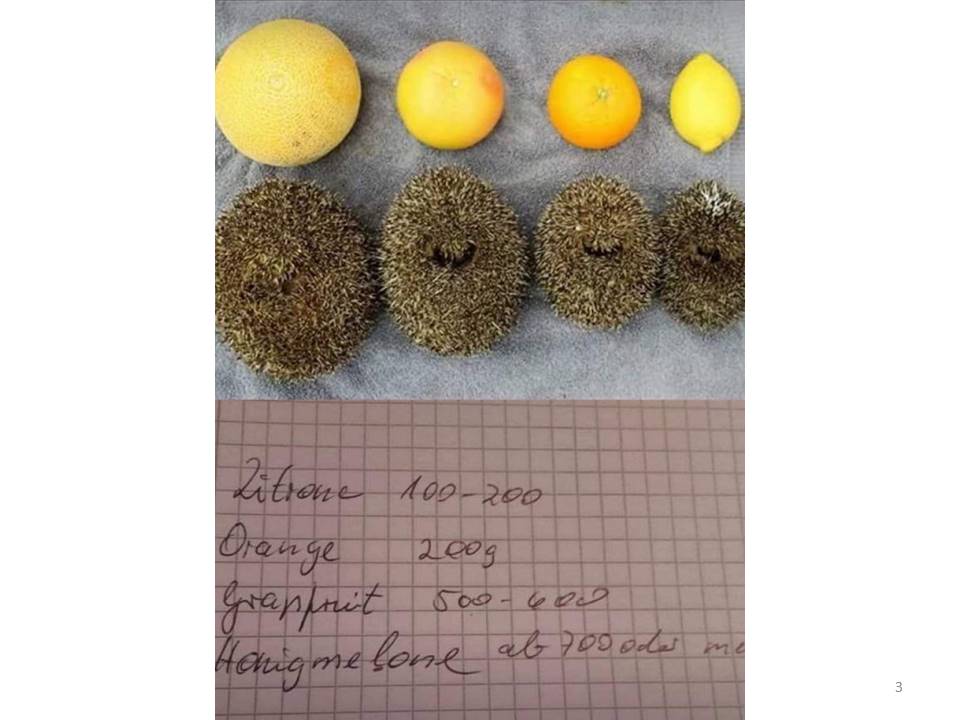 Zitrone 100-200
Orange 200g
Grapfruit 500-600
Honigmelone ab 700 oder
3